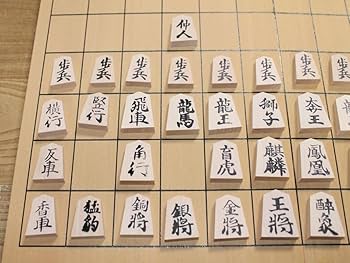 仲人
歩兵 歩兵 歩兵 歩兵 歩兵 歩兵 歩兵 歩兵
横行 竪行 飛車 龍馬 龍王 獅子 奔王
反車 角行 盲虎 麒麟 鳳凰
香車 猛豹 銅将 銀将 金将 王将 酔象